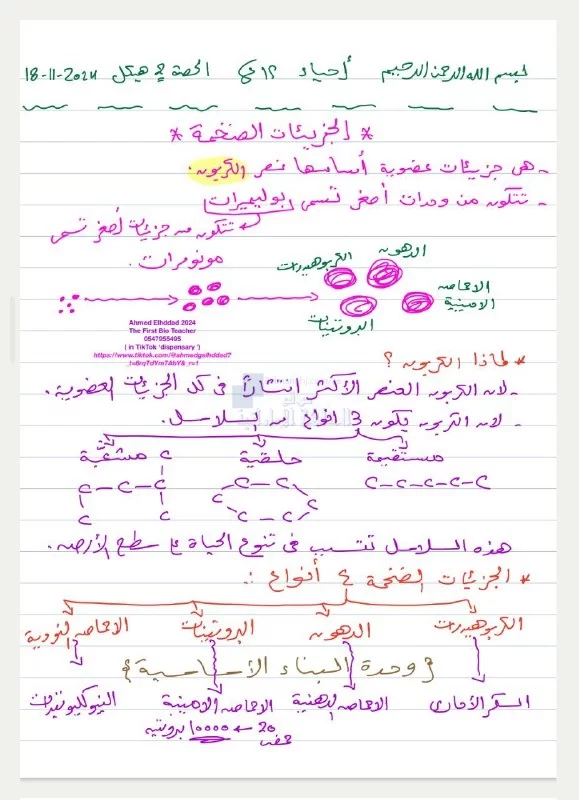 بسم الله الرحمن الرحيم أحياء ١٢ الحصة هيكل 18-11-2024
* الجزيئات الضخمة *
- هي جزيئات عضوية أساسها عنصر الكربون.
- تتكون من وحدات أصغر تسمى بوليميرات
تتكون من جزيئات أصغر تسمى
مونومرات.
الدهون
الكربوهيدرات
الاحماض الامينية
البروتينات
Ahmed Elhddad 2024
The First Bio Teacher
0547955495
( in TikTok 'dispensary )
* لماذا الكربون ؟
- لان الكربون العنصر الأكثر انتشاراً في كل الجزيئات العضوية.
- لان الكربون يكون 3 انواع من السلاسل.
مستقيمة حلقية مشعّبة
C-C-C-C-C
C-C
C C
C-C
C
C-C-C
C C
هذه السلاسل تتسبب في تنوع الحياة على سطح الأرض.
* الجزيئات الضخمة ٤ أنواع :
الكربوهيدرات الدهون البروتينات الاحماض النووية
{وحدة البناء الأساسية}
السكر الأحادي الاحماض الدهنية الاحماض الامينية النيوكليوتيدات
20 حمض ← 10000 بروتين